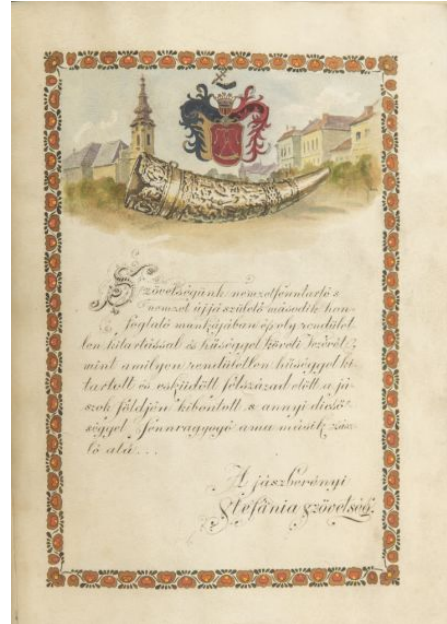 Szövetségünk nemzetfönntartó s
nemzet újjászülető második hon-
foglaló munkájában ép oly rendület-
len kitartással és hűséggel követi Vezérét,
mint amilyen rendületlen hűséggel ki-
tartott és esküdött félszázad előtt a já-
szok földjén kibontott s annyi dicső-
séggel fönnragyogó ama másik zász-
ló alá...
A jászberényi
Stefánia Szövetség.